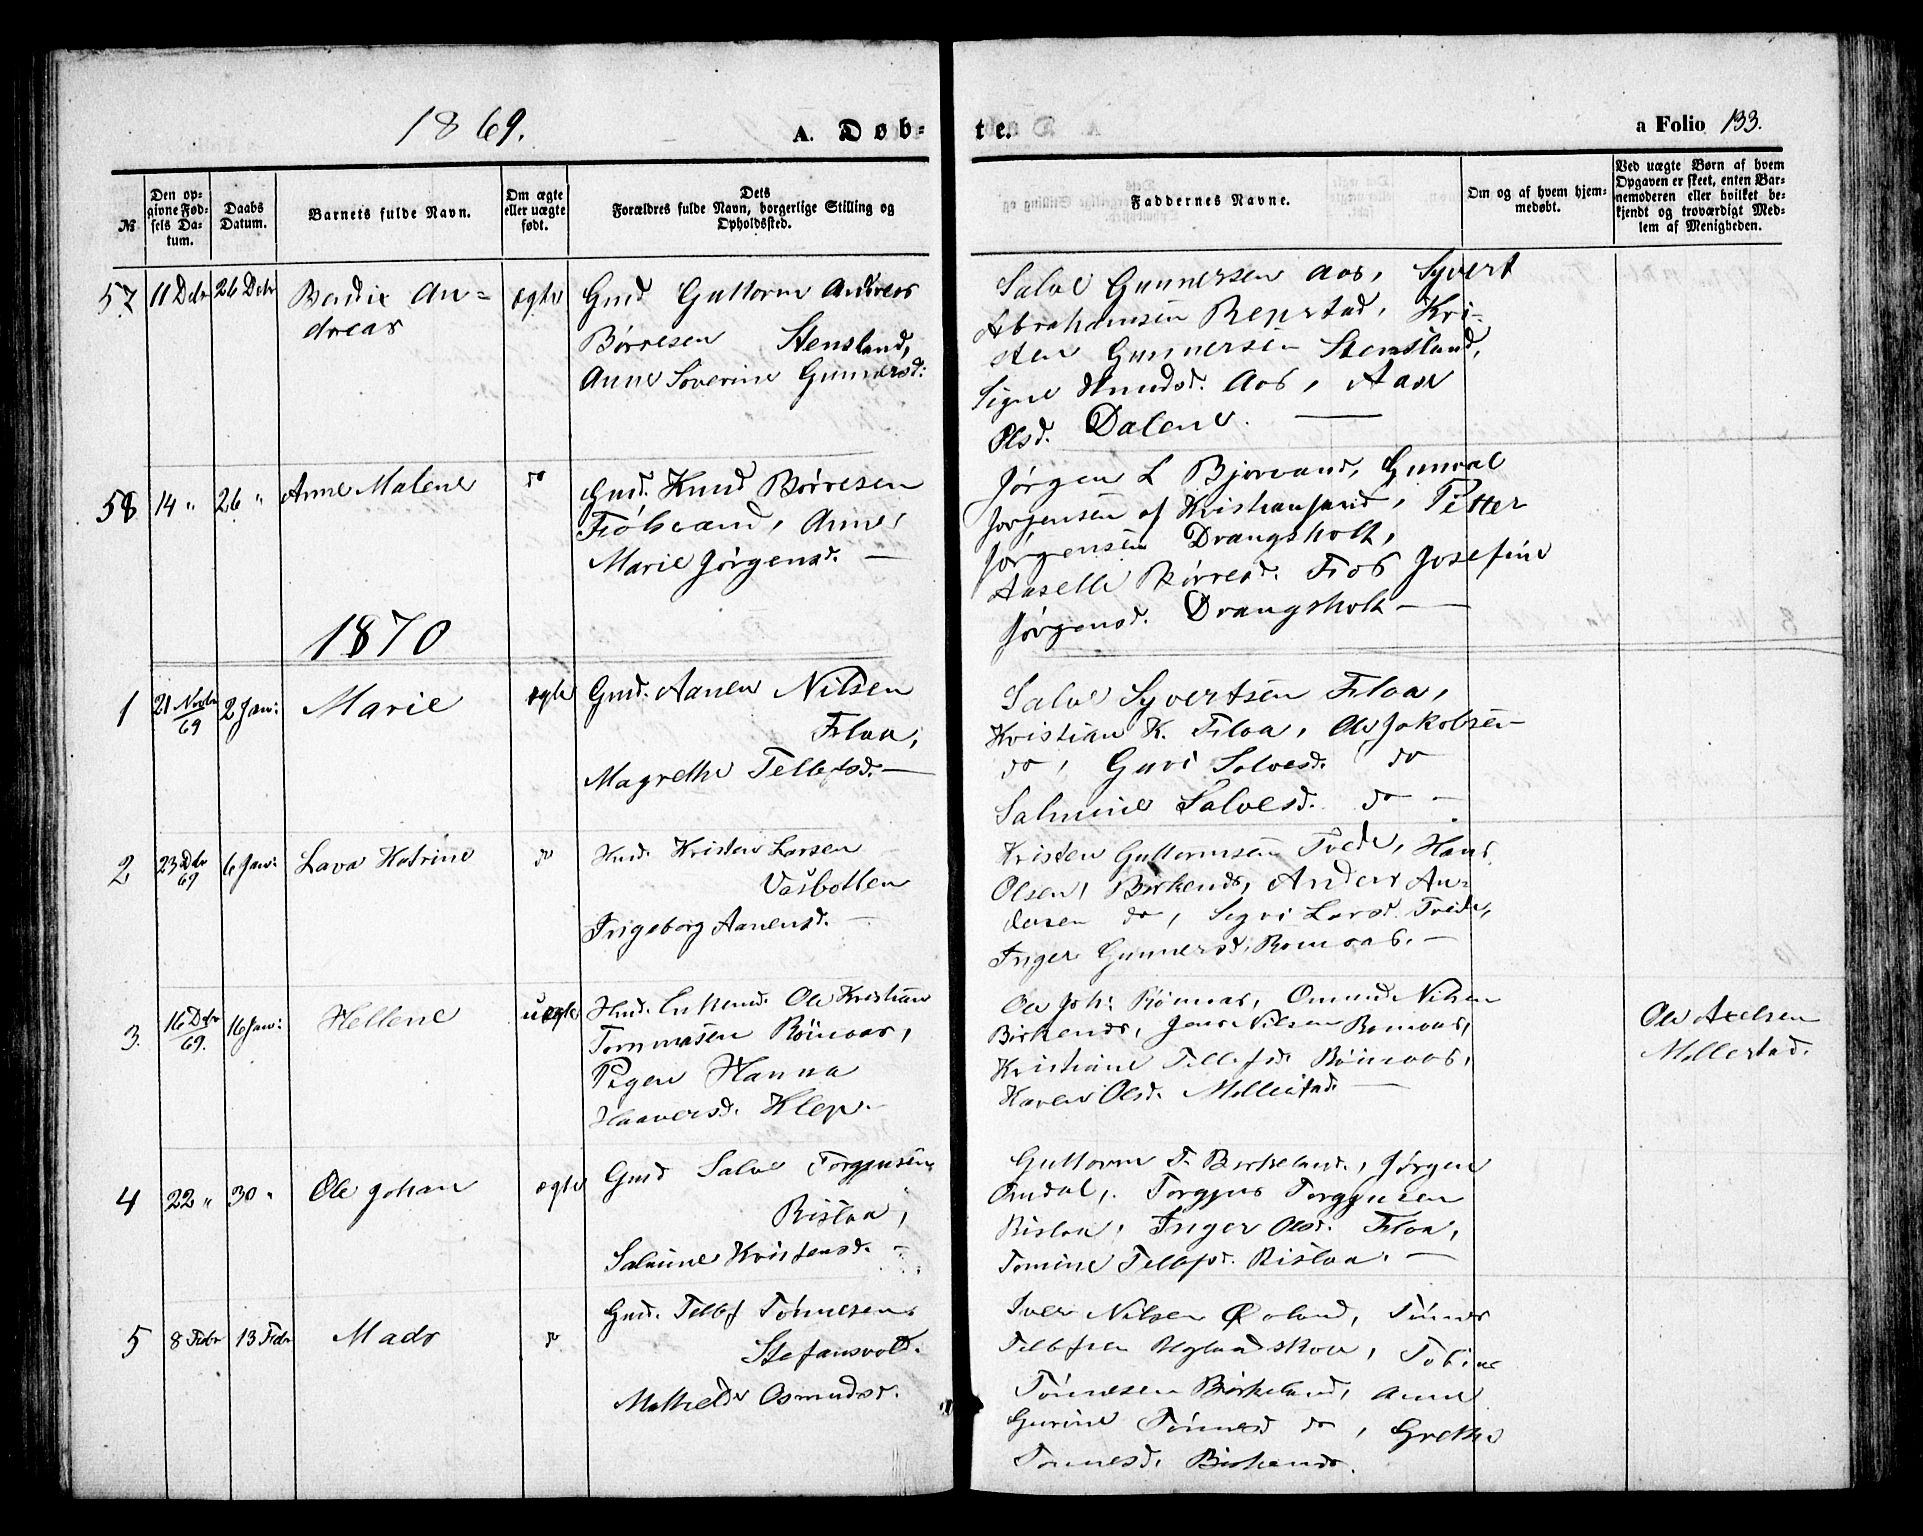 1869.
A. Døb-
te.
a Folio 133.
№
Den op-
givne Fød-
sels Da-
tum.
Daabs
Datum.
Barnets fulde Navn.
Om ægte
eller uægte
født.
Dets
Forældres fulde Navn, borgerlige Stilling og
Opholdssted.
Faddernes Navne.
Om og af hvem hjem-
medøbt.
Ved uægte Børn af hvem
Opgaven er skeet, enten Bar-
nemoderen eller hvilket be-
kjendt og troværdigt Med-
lem af Menigheden.
57 11 Dcbr 26 Dcbr Bendix An-
dreas
ægte
Gmd Guttorm Andreas
Børresen Stensland,
Anne Severine Gunnersd:
Salve Gunnersen Aas, Syvert
Abrahamsen Repstad, Kri-
sten Gunnersen Stensland,
Signe Knudsd. Aas, Aase
Olsd. Dalene. —
58 14 " 26 " Anne Malene do
Gmd. Knud Børresen
Fiøbvand, Anne
Marie Jørgensd. —
Jørgen L Bjorvand, Gunval
Jørgensen af Kristiansand, Petter
Jørgensen Drangsholt,
Aaselle Børresd. Josefine
Jørgensd. Drangsholt —
1870
1 21 Novbr 69 2 Jan: Marie ægte
Gmd. Aanen Nilsen
Floa,
Magrethe Tellefsd. —
Salve Syvertsen Floa,
Kristian K. Floa, Ole Jakobsen
do, Guri Salvesd. do
Salmine Salvesd. do —
2 23 Dcbr 69 6 Jan: Lava Katrine do
Hmd. Kristen Larsen
Vasbotten
Ingeborg Aanensd. —
Kristen Guttormsen Tvede, Hans
Olsen, Birkenes, Anders An-
dersen do, Segri Larsd. Tvede,
Inger Gunnersd. Rømoas. —
3. 16 Dcbr 69. 16 Jan: Hellene uægte
Hmd. Enkemd. Ole Kristian
Tommasen Rømoas,
Pigen Hanna
Haaversd. Klep. —
Ole Joh: Rømoas, Omund Nilsen
Birkenes, Jens Nilsen Rømoas,
Kristiane Tellefsd. Rømoas,
Karen Olsd. Mollestad. —
Ole Axelsen
Mollestad.
4 22 " 30 " Ole Johan ægte
Gmd Salve Torgjusen
Risloa,
Salmine Kristensd. —
Guttorm T. Birkeland, Jørgen
Omdal, Torgjus Torgjusen
Risloa, Inger Olsd. Floa,
Tomine Tellefsd. Risloa. —
5 8 Febr 13 Febr Mads do
Gmd. Tellef Tønnesen
Stefansvold.
Mathelde Osmundsd.
Iver Nilsen Tønnes
Tellefsen Uglandskou, Tobias
Tønnesen Birkeland, Anne
Gurine Tønnesd do, Grethe
Tønnesd. Birkenes.